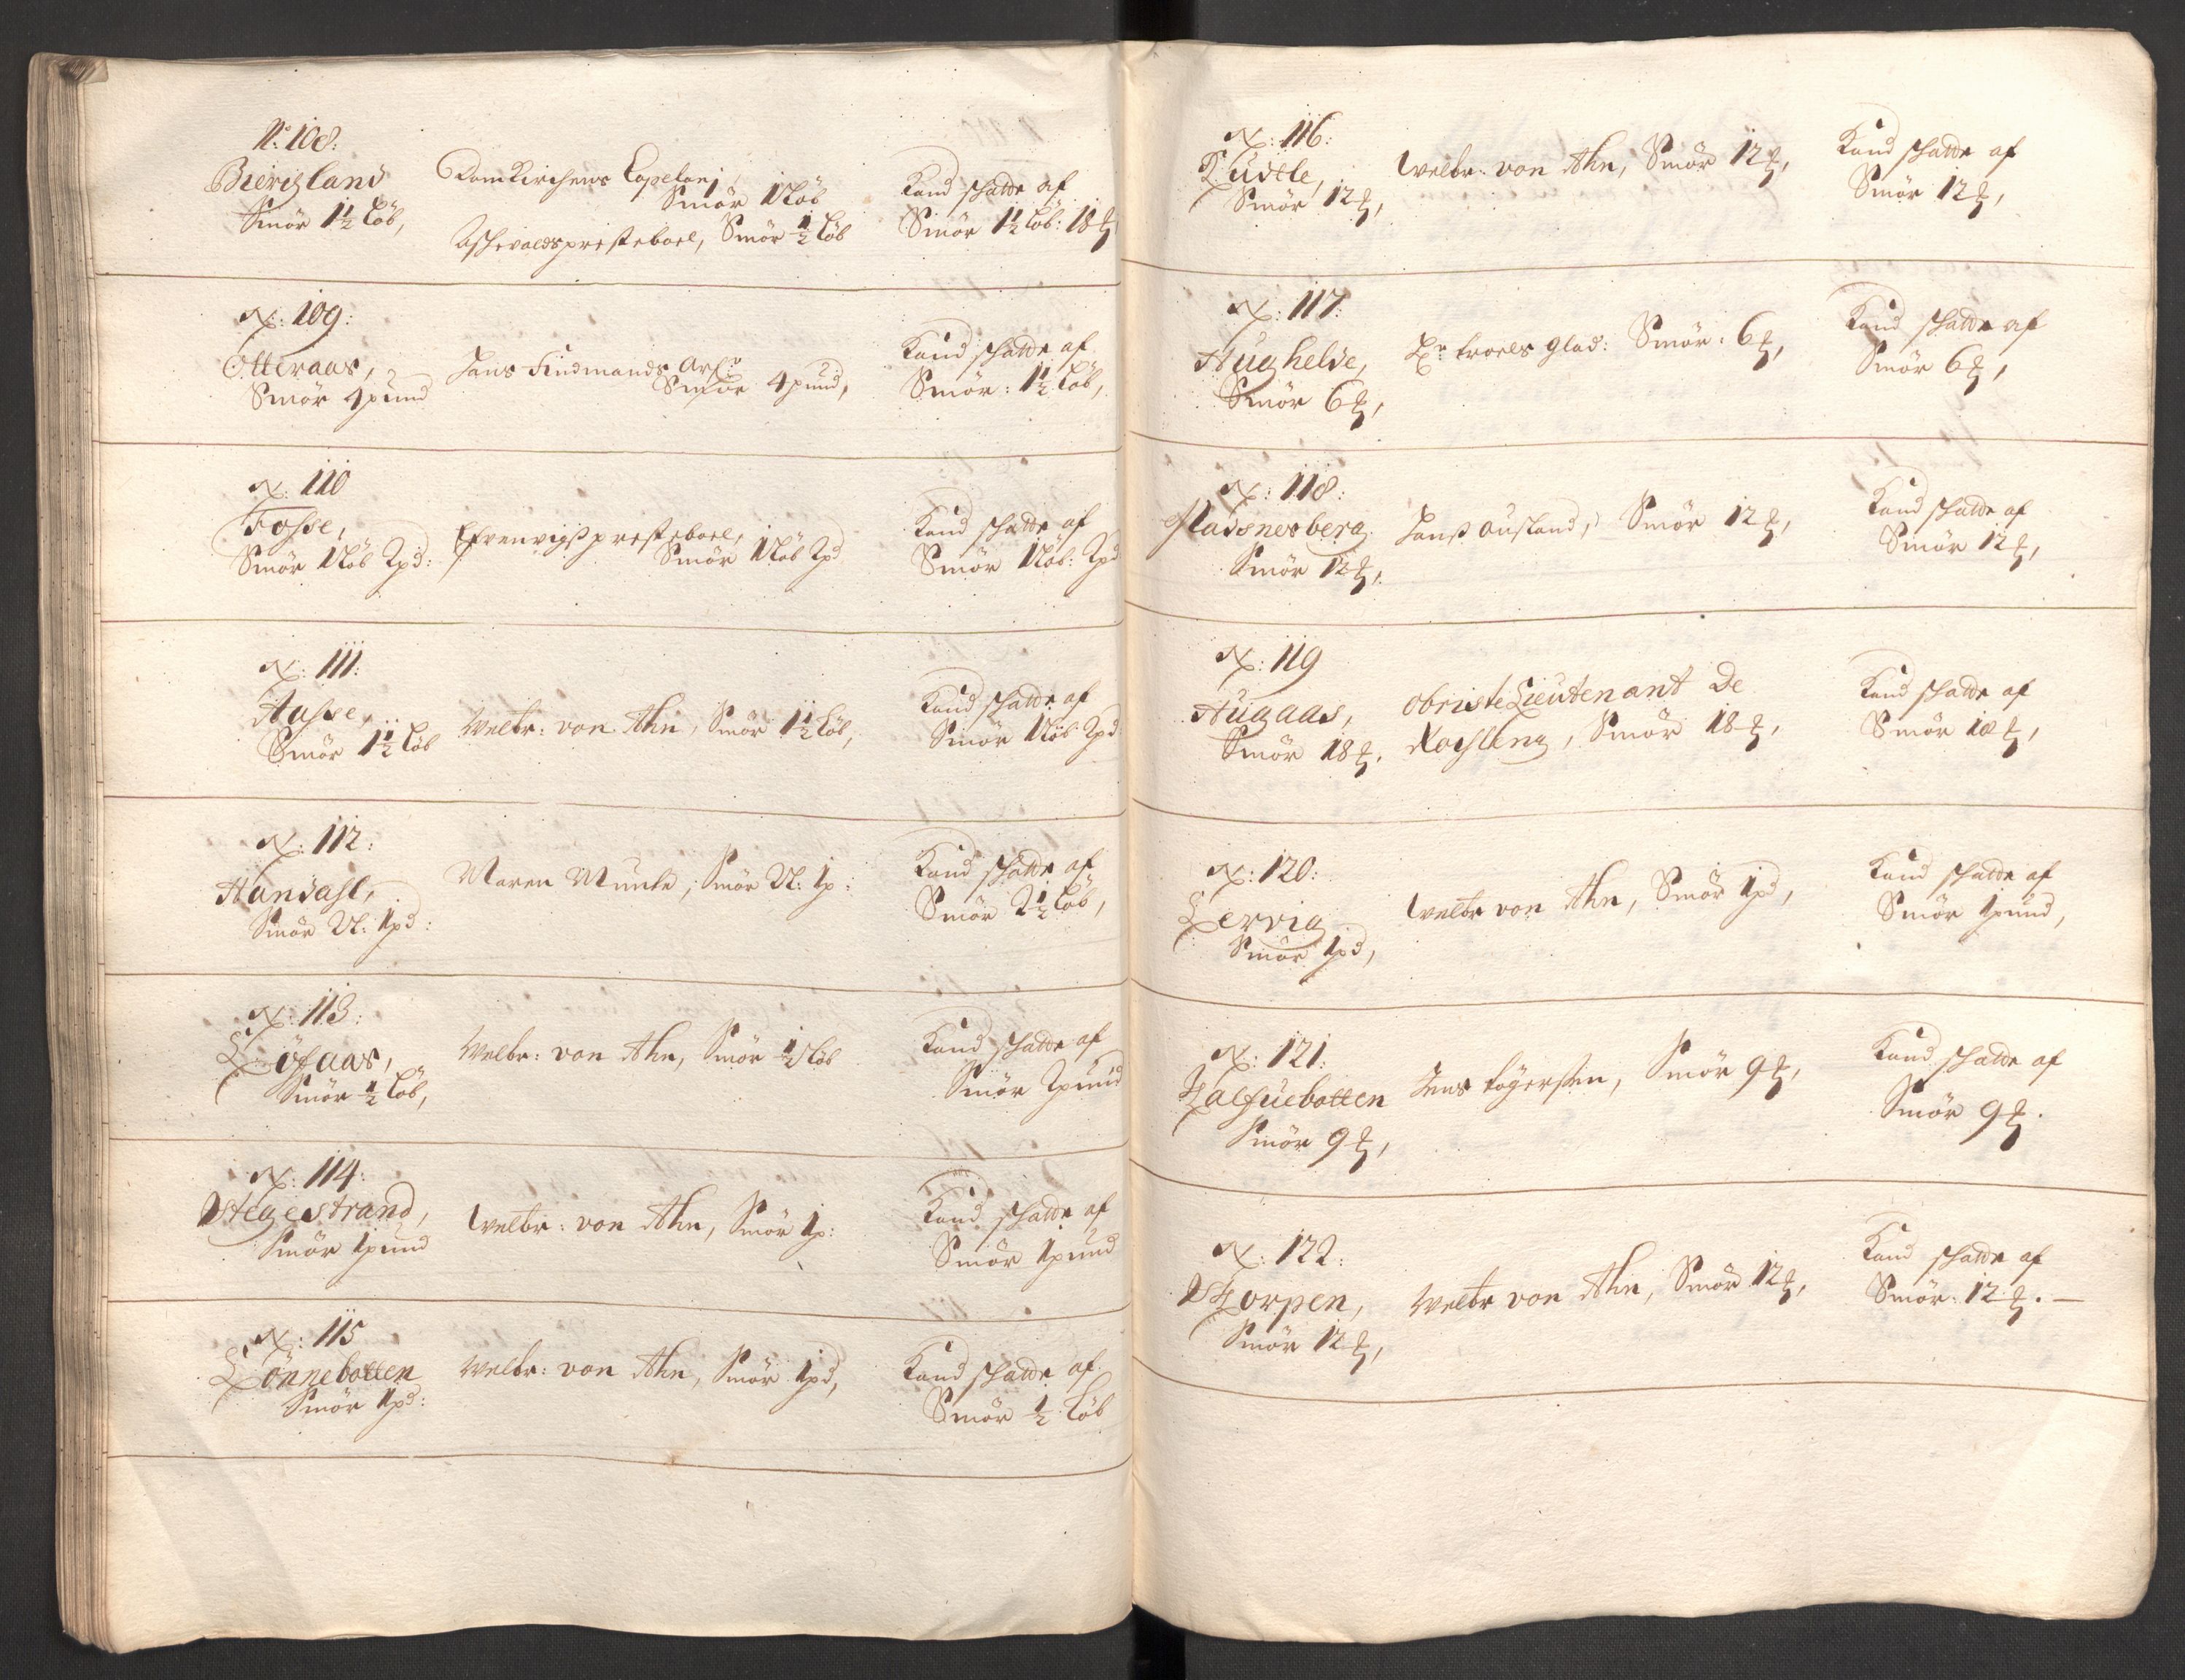 N: 108:
Biergland
Smör 1½ Löb,
Domkirchens Capelani
Smör 1 Löb
Aschevoldspresteboel, Smör ½ Löb
Kand schatte af
Smör 1½ Löb: 18 ℔
N: 109:
Otteraas,
Smör 4 pund
Hans Findmands Arf:
Smör 4 pund,
Kand schatte af
Smör: 1½ Löb,
N: 110
Fosse,
Smör 1 Löb 2 pd:
presteboel,
Smör 1 Löb 2 pd
Kand schatte af
Smör 1 Löb: 2 pd
N: 111:
Aasse,
Smör 1½ Löb
Welbr: von Ahn, Smör 1½ Löb,
Kand schatte af
Smör 1 Löb 2 pd
N: 112:
Handasl,
Smör 2 l: 1 pd:
Maren Munte, Smör 2 l: 1 p:
Kand schatte af
Smör 2½ Löb,
N: 113:
Löfaas,
Smör ½ Löb,
Welbr: von Ahn, Smör ½ Löb
Kand schatte af
Smör 2 pund
N: 114:
Stegestrand,
Smör 1 pund
Welbr: von Ahn, Smör 1 p:
Kand schatte af
Smör 1 pund
N: 115
Lönnebotten
Smör 1 pd:
Welbr: von Ahn, Smör 1 pd,
Kand schatte af
Smör ½ Löb
N: 116:
Tudtle,
Smör 12 ℔,
Welbr: von Ahn, Smör 12 ℔,
Kand schatte af
Smör 12 ℔,
N: 117:
Hughelde,
Smör 6 ℔,
Hr: troels glad: Smör: 6 ℔,
Kand schatte af
Smör 6 ℔,
N: 118:
Madsnesberg
Smör 12 ℔,
Hans ousland, Smör 12 ℔,
Kand schatte af
Smör 12 ℔,
N: 119
Hugaas,
Smör 18 ℔.
obriste Lieutenant De
Smör 18 ℔,
Kand schatte af
Smör 18 ℔,
N: 120:
Lervig
Smör 1 pd,
Welbr von Ahn, Smör 1 pd,
Kand schatte af
Smör 1 pund,
N: 121:
Kalfuebotten
Smör 9 ℔,
Jens tögersen, Smör 9 ℔,
Kand schatte af
Smör 9 ℔.
N: 122:
Skorpen,
Smör 12 ℔,
Welbr von Ahn, Smör 12 ℔,
Kand schatte af
Smör: 12 ℔. —